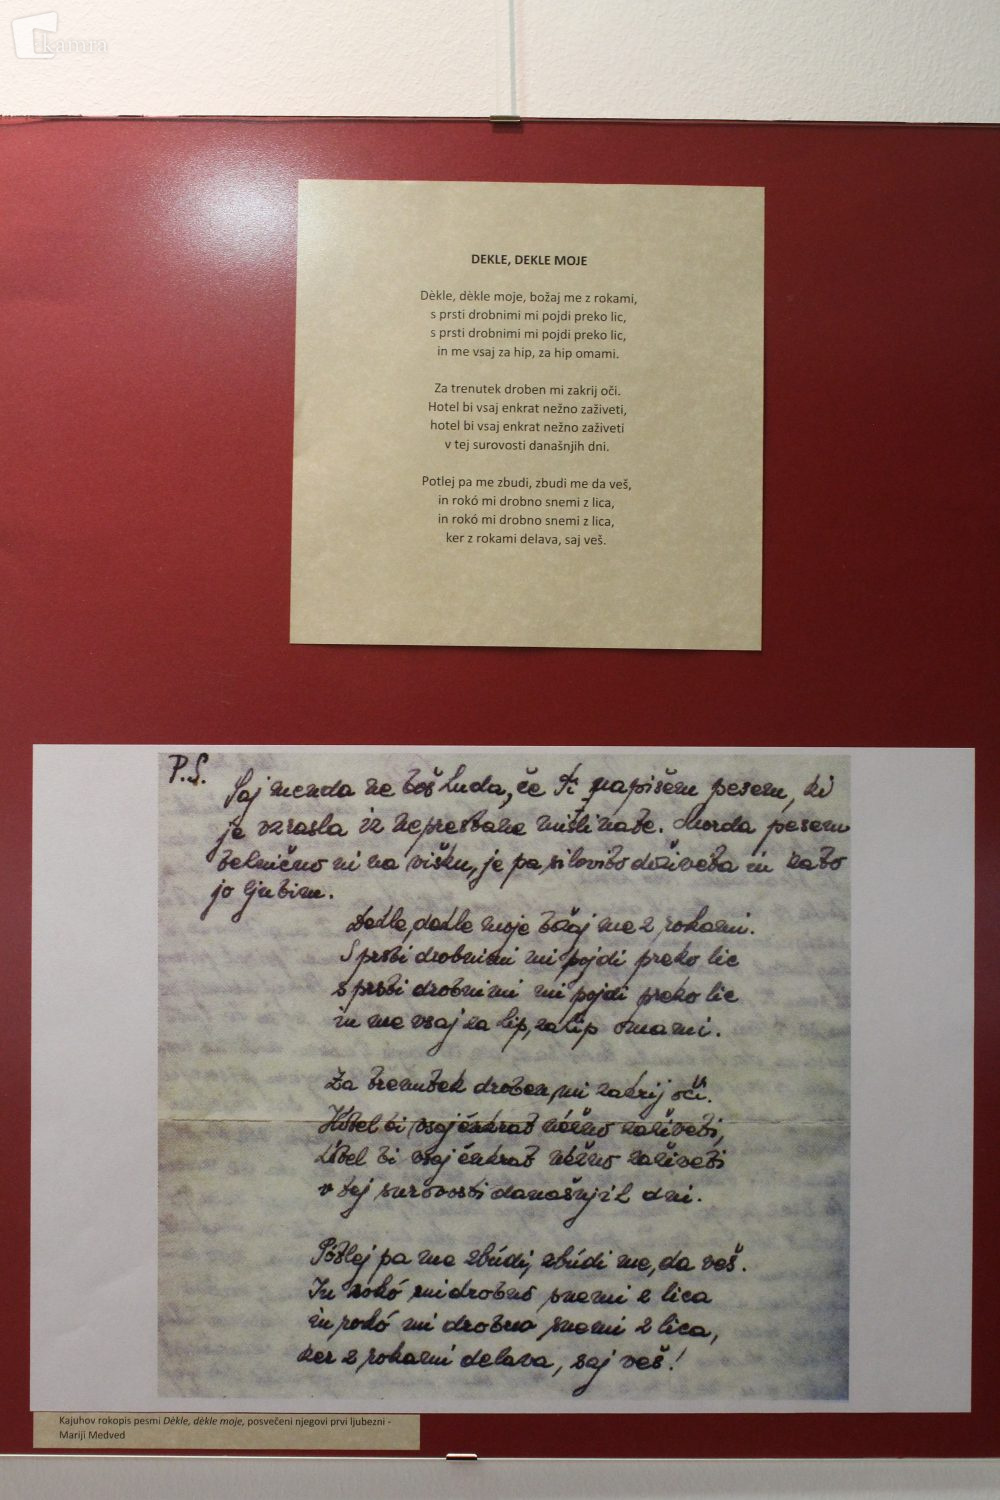 kamra
DEKLE, DEKLE MOJE
Dèkle, dèkle moje, božaj me z rokami,
s prsti drobnimi mi pojdi preko lic,
s prsti drobnimi mi pojdi preko lic,
in me vsaj za hip, za hip omami.
Za trenutek droben mi zakrij oči.
Hotel bi vsaj enkrat nežno zaživeti,
hotel bi vsaj enkrat nežno zaživeti
v tej surovosti današnjih dni.
Potlej pa me zbudi, zbudi me da veš,
in rokó mi drobno snemi z lica,
in rokó mi drobno snemi z lica,
ker z rokami delava, saj veš.
P.S.
Saj menda ne boš huda, če Ti napišem pesem, ki
je vzrasla iz neprestane misli nate. Morda pesem
tehnično ni na višku, je pa silovito doživeta in zato
jo ljubim.
Dekle, dekle moje božaj me z rokami.
S prsti drobnimi mi pojdi preko lic
s prsti drobnimi mi pojdi preko lic
in me vsaj za hip, za hip omami.
Za trenutek droben mi zakrij oči.
Hotel bi vsaj énkrat néžno zaživeti,
hotel bi vsaj énkrat néžno zaživeti
v tej surovosti današnjih dni.
Pótlej pa me zbúdi, zbúdi me, da veš.
In rokó mi drobno snemi z lica
in rokó mi drobno snemi z lica,
ker z rokami delava, saj veš!
Kajuhov rokopis pesmi Dèkle, dèkle moje, posvečeni njegovi prvi ljubezni -
Mariji Medved